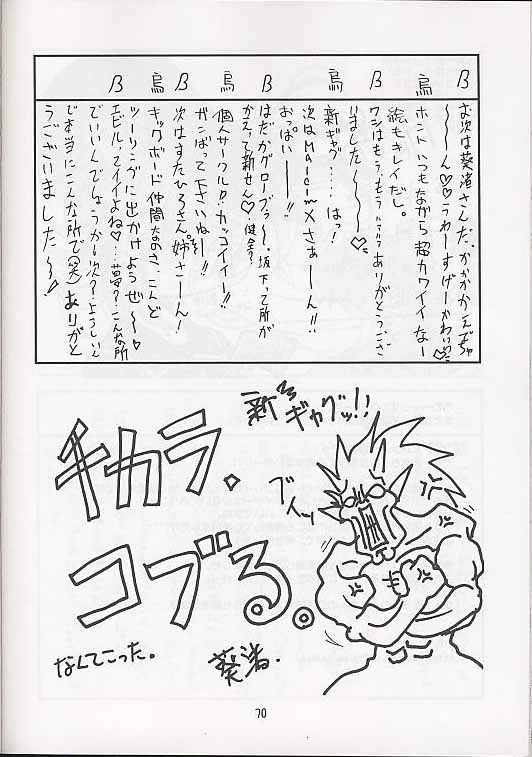 β
お次は葵渚さんだ、かかかかえでちゃ
〜〜ん♡♡うわーすげーかわいい♡
烏
ホントいつもながら超カワイイなー
β
絵もキレイだし。
ワシはもう、もう ありがとうござ
いました〜〜♡
烏
新ギャグ‥‥はっ!
β
次はMalcomXさぁーん!!
おっぱいー!!
はだかグローブぅ〜、坂下って所が
かえって新せん♡健全?
烏
個人サークル カッコイイー!!
ガンばって下さいねー!!
β
次はすたひろさん、姉さーん!
烏
キックボード仲間なのさ、こんど
ツーリングに出かけようぜ〜♡
β
エビルってイイよね♡‥夢?こんな所
でいいんでしょうか次?ようしいん
で本当にこんな所で(笑)ありがと
うございました〜!
新ギャグッ!!
チカラ、
コブる。
ブイッ
なんてこった。
葵渚.
70